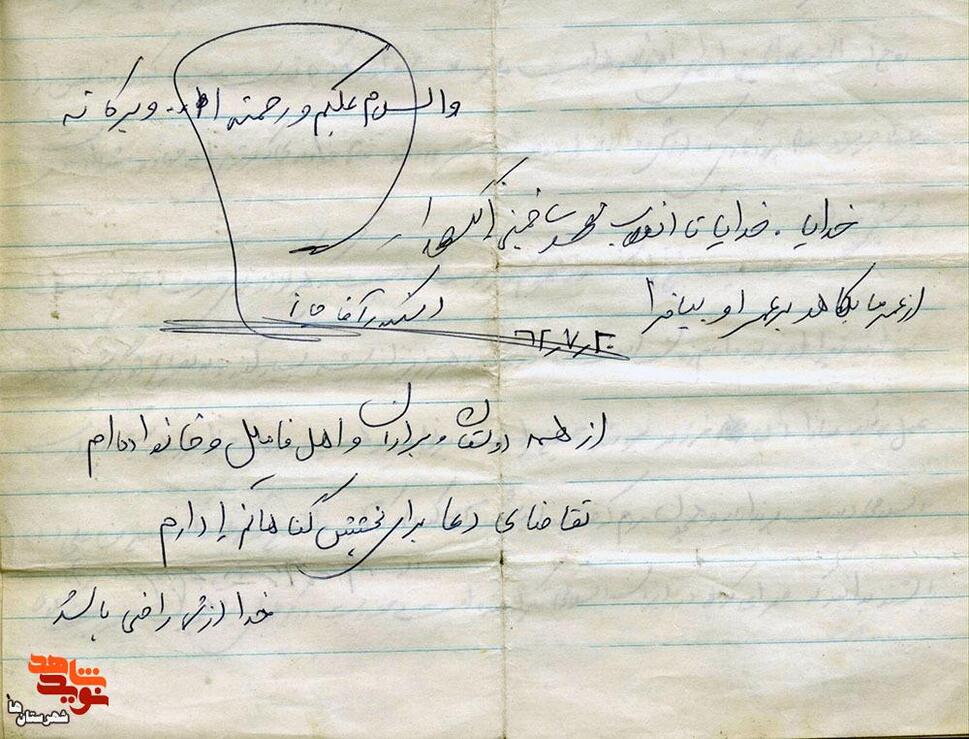 والسلام علیکم ورحمته الله وبرکاته
خدایا . خدایا تا انقلاب مهدی خمینی را نگهدار
از عمر ما بکاهد بر عمر او بیافزا
اسکندر آقاخانی
62,7,20
از همه دوستان و برادران و اهل فامیل و خانواده‌ام
تقاضای دعا برای بخشش گناهانم را دارم
خدا از شما راضی باشد
نوید شاهد
شهرستان‌ها